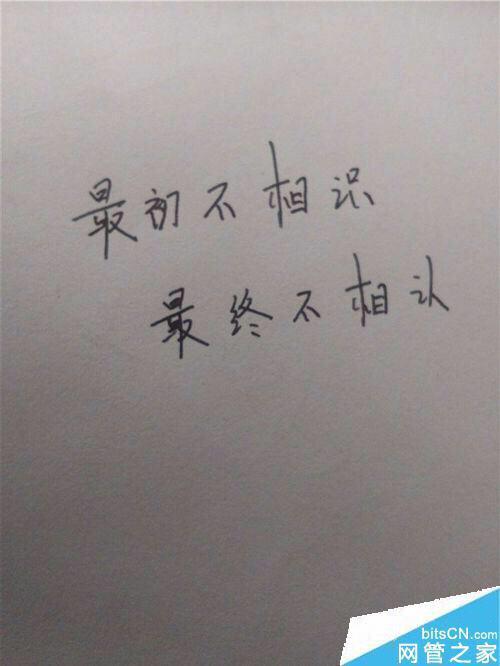 最初不相识
最终不相认
bitsCN.com
网管之家